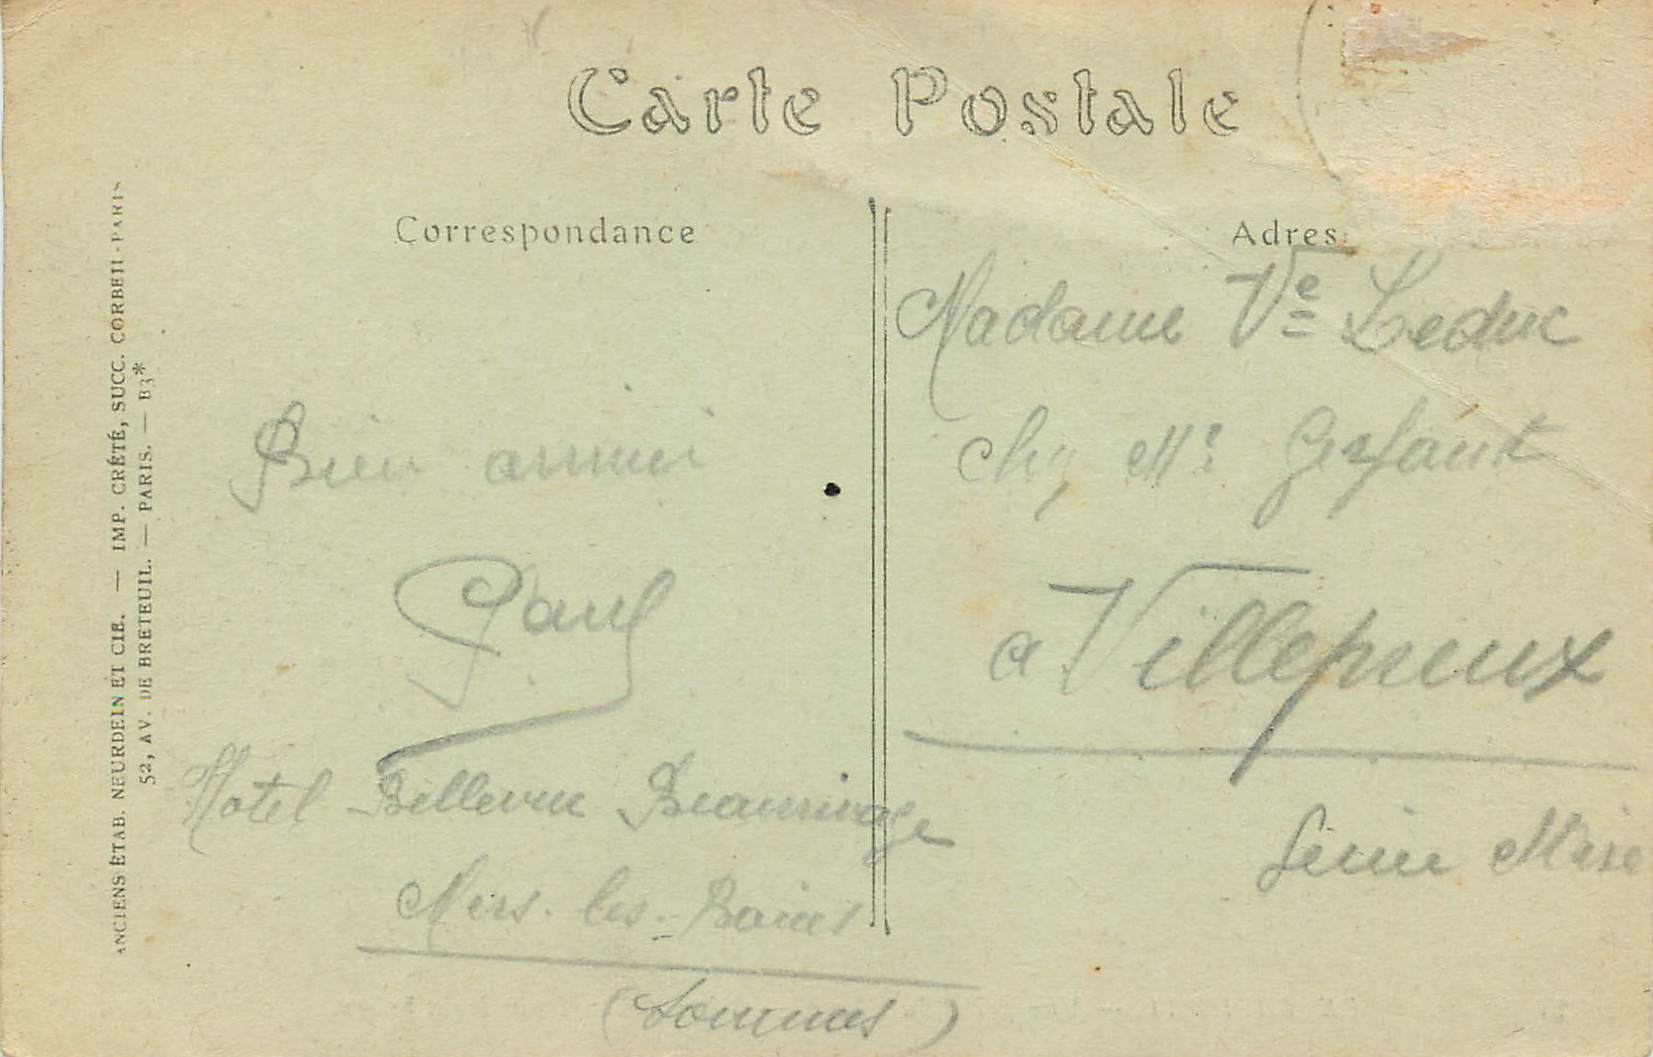 Carte Postale
Correspondance
Adres
Bien arrivé
Paul
Hotel Bellevue Beaurivage
Mers-les-Bains
(Somme)
Madame Ve Leduc
chez Mr Gerfault
a Villepreux
Seine
ANCIENS ÉTAB. NEURDEIN ET CIE. — IMP. CRÉTÉ, SUCC. CORBEIL-PARIS
52, AV. DE BRETEUIL. — PARIS. — B3*